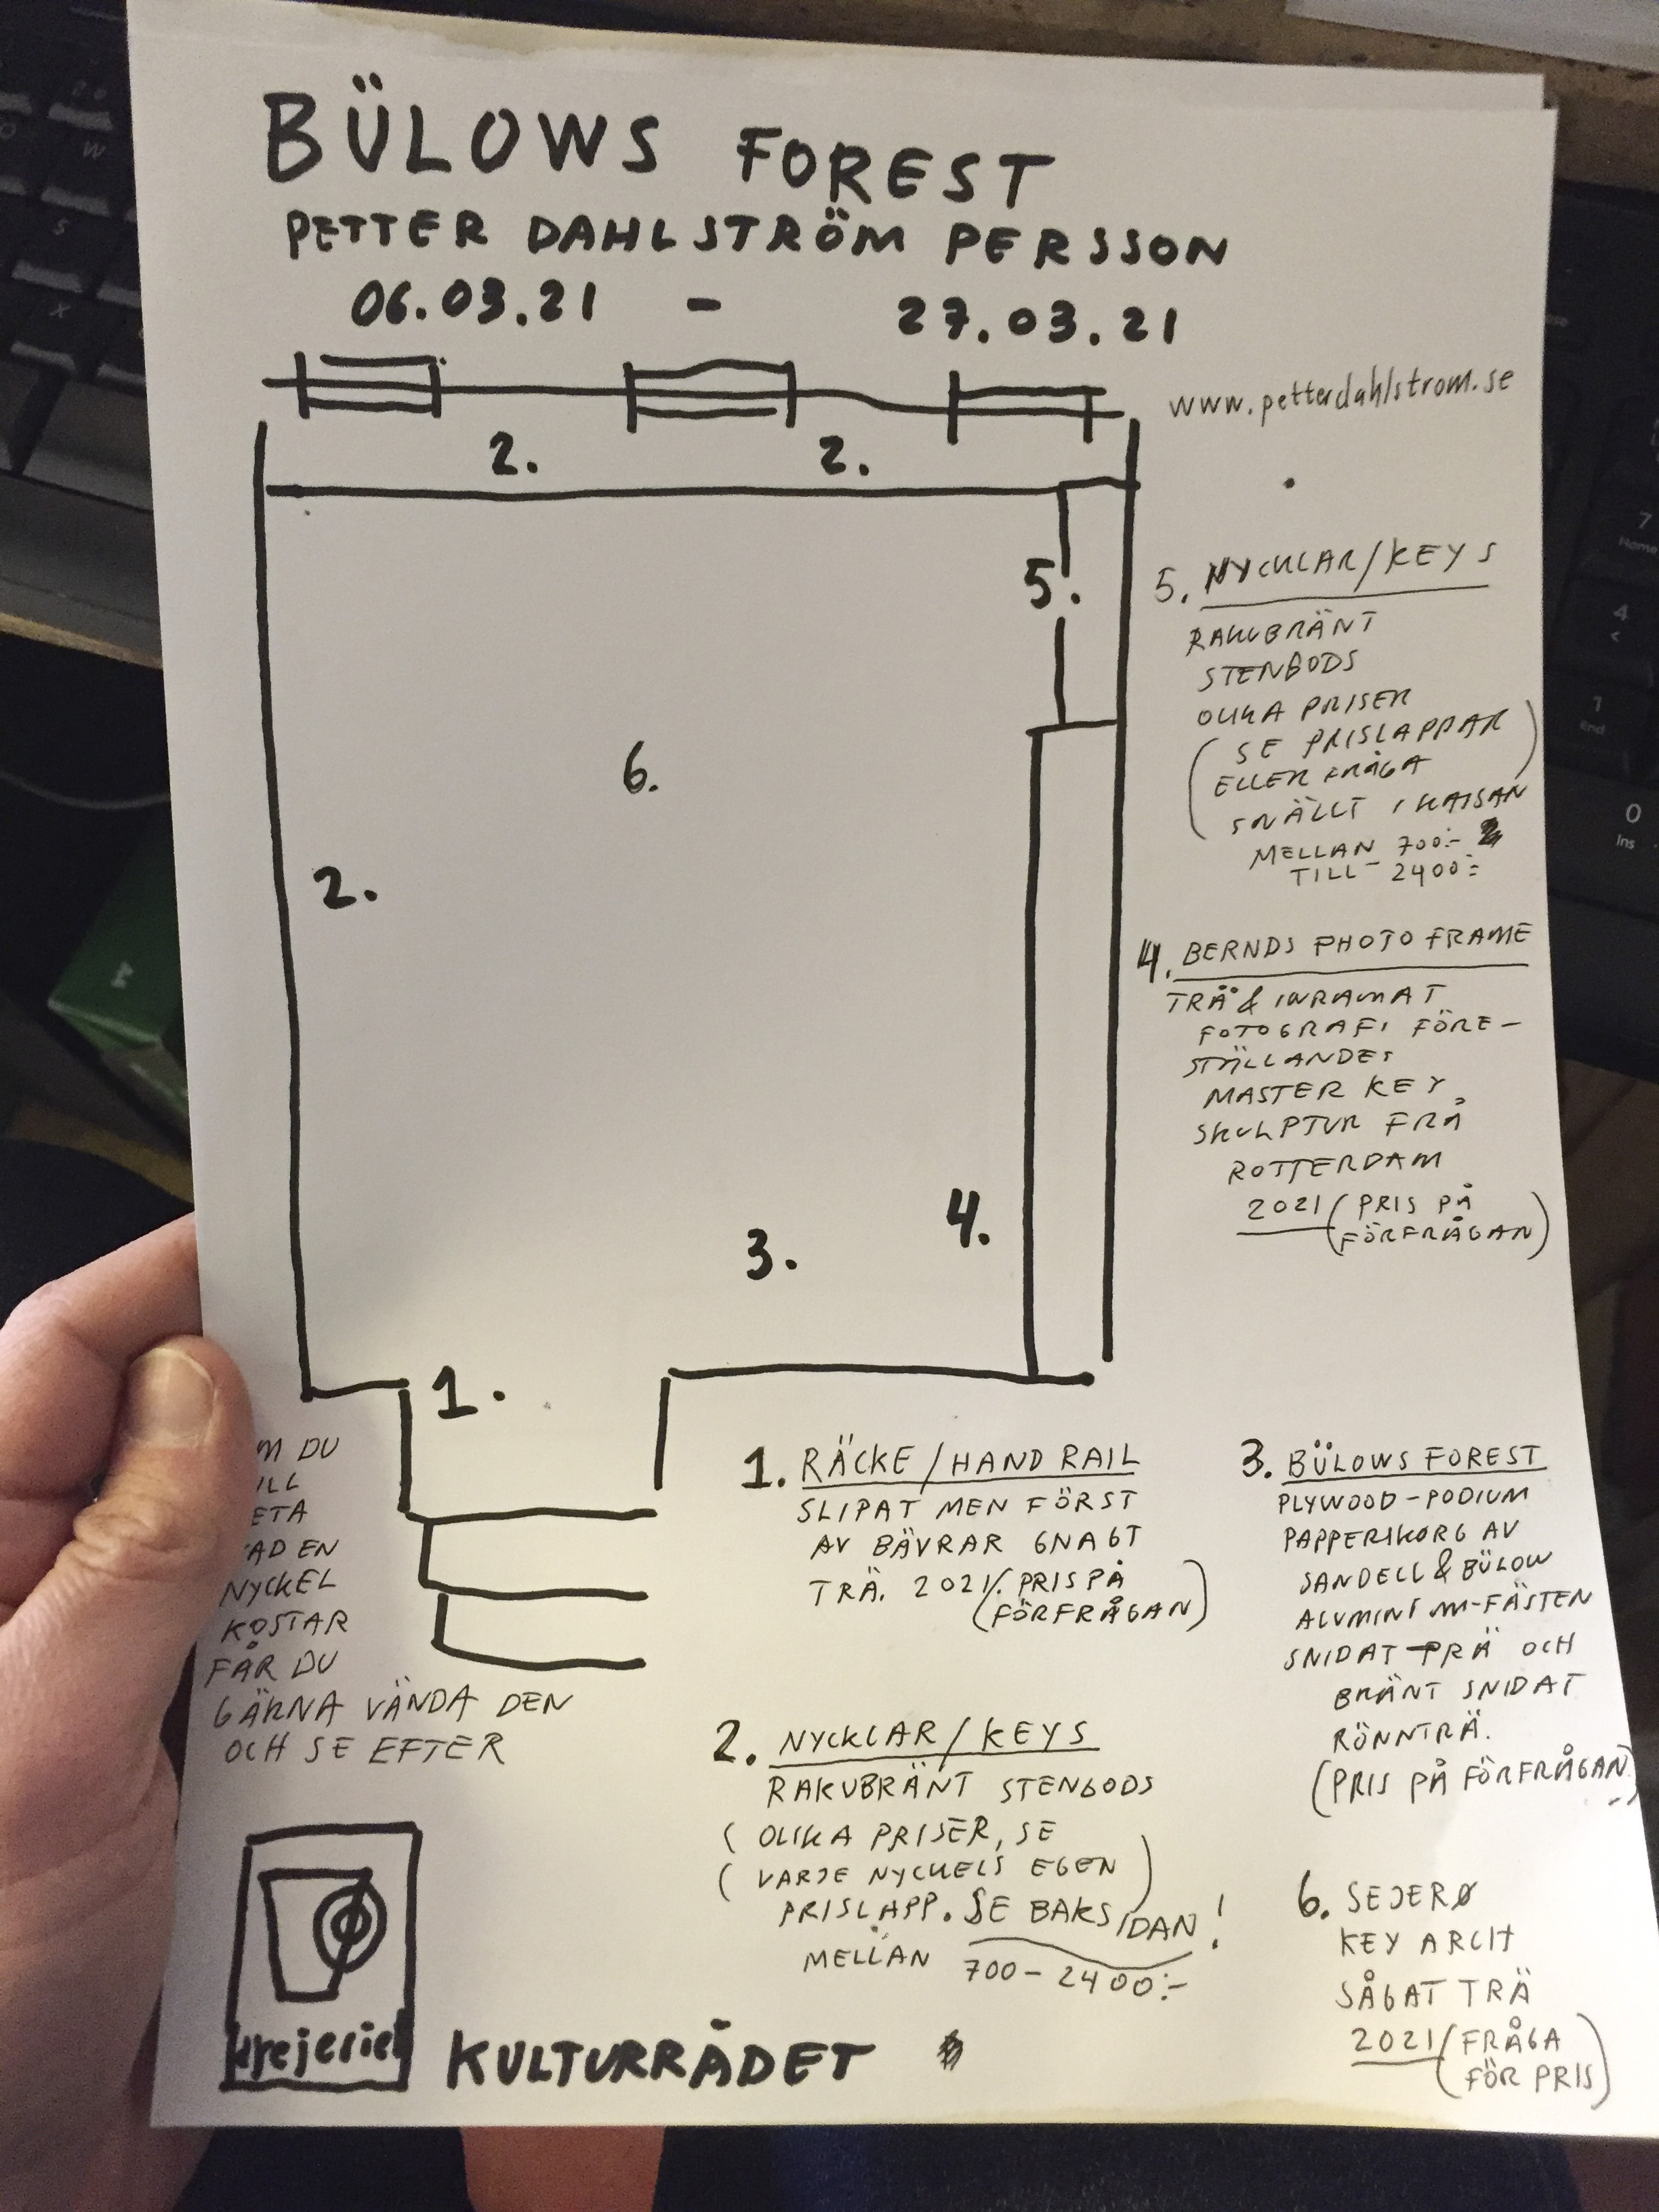 BÜLOWS FOREST
PETTER DAHLSTRÖM PERSSON
06.03.21 - 27.03.21
www.petterdahlstrom.se
2. 2.
5.
6.
2.
4.
3.
1.
5. NYCKLAR/KEYS
RAKUBRÄNT
STENGODS
OLIKA PRISER
(SE PRISLAPPAR
ELLER FRÅGA
SNÄLLT I KASSAN)
MELLAN 700:-
TILL 2400:-
4. BERNDS PHOTO FRAME
TRÄ & INRAMAT
FOTOGRAFI FÖRE-
STÄLLANDES
MASTER KEY
SKULPTUR FRÅ
ROTTERDAM
2021 (PRIS PÅ
FÖRFRÅGAN)
M DU
ILL
ETA
AD EN
NYCKEL
KOSTAR
FÅR DU
GÄRNA VÄNDA DEN
OCH SE EFTER
1. RÄCKE/HAND RAIL
SLIPAT MEN FÖRST
AV BÄVRAR GNAGT
TRÄ. 2021. (PRIS PÅ
FÖRFRÅGAN)
2. NYCKLAR/KEYS
RAKUBRÄNT STENGODS
(OLIKA PRISER, SE
(VARJE NYCKELS EGEN)
PRISLAPP. SE BAKSIDAN!
MELLAN 700-2400:-
3. BÜLOWS FOREST
PLYWOOD-PODIUM
PAPPERSKORG AV
SANDELL & BÜLOW
-FÄSTEN
SNIDAT TRÄ OCH
BRÄNT SNIDAT
RÖNNTRÄ.
(PRIS PÅ FÖRFRÅGAN)
6. SEJERØ
KEY ARCH
SÅGAT TRÄ
2021 (FRÅGA
FÖR PRIS)
krejeriet
KULTURRÅDET